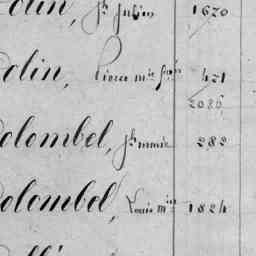 olin, Jh Julien 1620
olin, Pierre mie 421
2086
olombel, Jh marie 282
olombel, Louis mie 1824